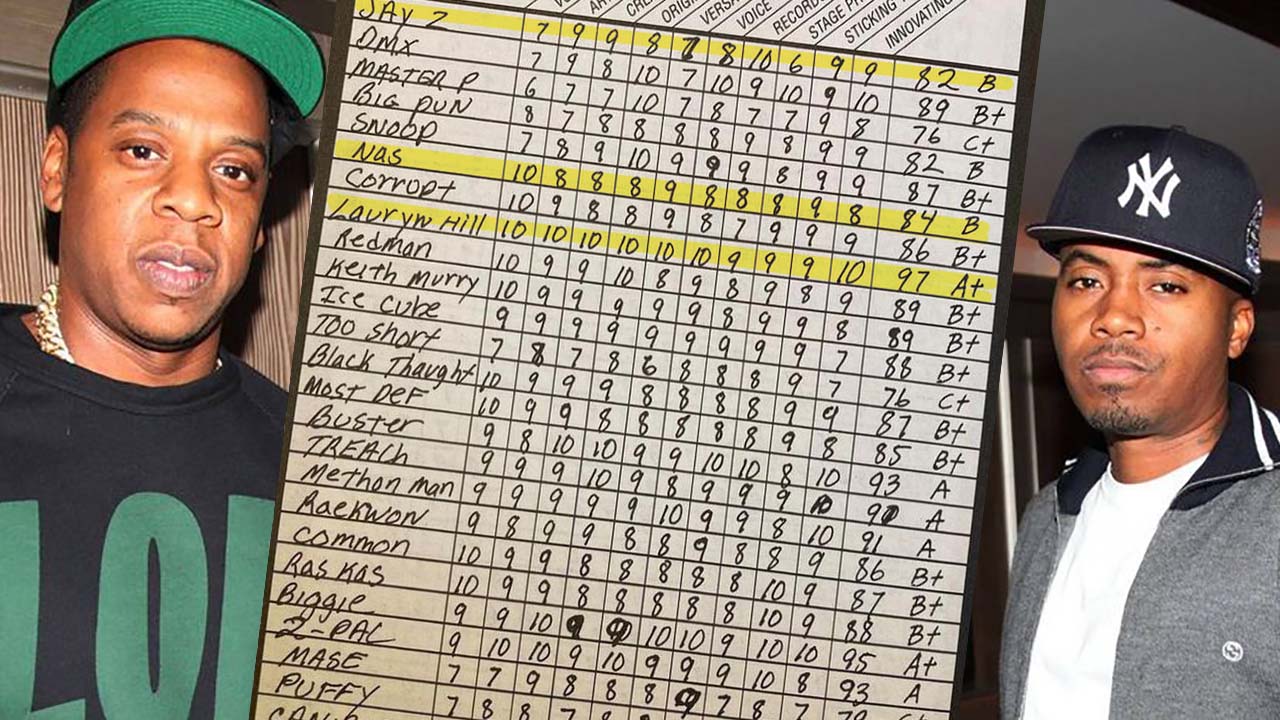 VOICE
RECORDS
STAGE PR
STICKING
INNOVATING
JAY Z 7 9 9 8 7 8 10 6 9 9 82 B
DMX 7 9 8 10 7 10 9 10 9 10 89 B+
MASTER P 6 7 7 10 7 8 7 7 9 8 76 C+
BIG PUN 8 7 8 8 8 8 9 8 9 9 82 B
SNOOP 7 8 9 10 9 9 9 8 9 9 87 B+
Nas 10 8 8 8 9 8 8 8 9 8 84 B
Corrupt 10 9 8 8 9 8 7 9 9 9 86 B+
Lauryn Hill 10 10 10 10 10 10 9 9 9 10 97 A+
Redman 10 9 9 10 8 9 8 9 8 9 89 B+
Keith Murry 10 9 9 9 9 9 8 9 9 8 89 B+
Ice Cube 9 9 9 9 9 9 9 9 9 7 88 B+
Too Short 7 8 7 8 6 8 8 8 9 7 76 C+
Black Thaught 10 9 9 9 8 8 8 8 9 9 87 B+
Most Def 10 9 9 8 8 8 8 8 9 8 85 B+
Buster 9 8 10 10 9 9 10 10 8 10 93 A
TREACH 9 9 9 10 9 8 9 9 9 A
Methon man 9 9 9 9 9 10 9 9 8 10 91 A
Raekwon 9 8 9 9 8 8 9 8 8 9 86 B+
Common 10 9 9 8 8 8 8 8 10 9 87 B+
Ras Kas 10 9 9 8 8 8 8 8 10 9 88 B+
Biggie 9 9 10 9 9 10 10 9 10 10 95 A+
2-PAC 9 10 10 9 10 9 9 9 10 8 93 A
MASE 7 7 9 8 8 8 9 7 8 7
PUFFY 7 8 8 7
LO
NY